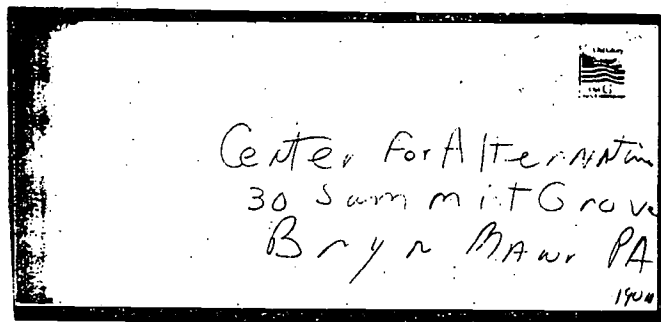 Center For Alternativ
30 Summit Grove
Bryn Mawr PA